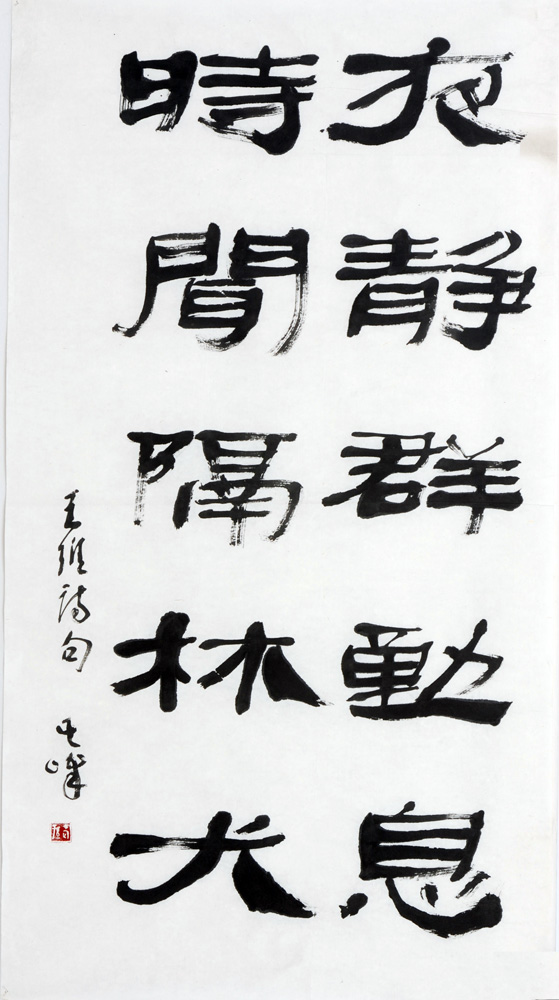 夜靜群動息
時聞隔林犬
王維詩句 其峰